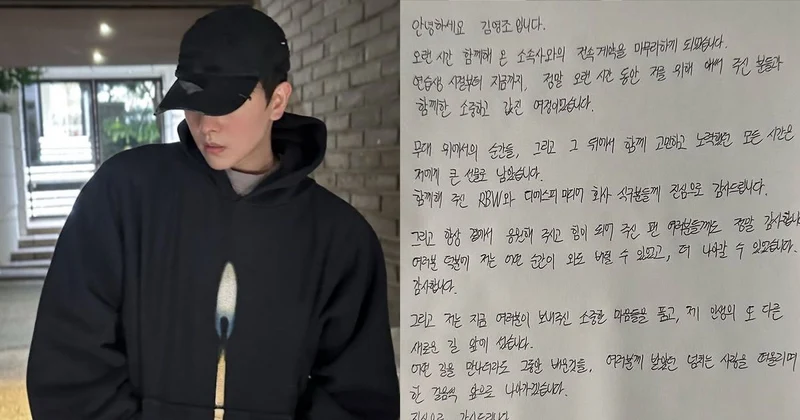 안녕하세요 김영조 입니다.
오랜 시간 함께해 온 소속사와의 전속계약을 마무리하게 되었습니다.
연습생 시절부터 지금까지, 정말 오랜 시간 동안 저를 위해 애써 주신 분들과
함께한 소중하고 값진 여정이었습니다.
무대 위에서의 순간들, 그리고 그 뒤에서 함께 고민하고 노력했던 모든 시간은
저에게 큰 선물로 남았습니다.
함께해 주신 RBW와 디에스피 미디어 회사 식구분들께 진심으로 감사드립니다.
그리고 항상 곁에서 응원해 주시고 힘이 되어 주신 팬 여러분들께도 정말 감사합니
여러분 덕분에 저는 어떤 순간이 와도 버틸 수 있었고, 더 나아갈 수 있었습니다.
감사합니다.
그리고 저는 지금 여러분이 보내주신 소중한 마음들을 품고, 제 인생의 또 다른
새로운 길 앞에 섰습니다.
어떤 길을 만나더라도 그동안 배운것들, 여러분께 받았던 넘치는 사랑을 떠올리며
한 걸음씩 앞으로 나아가겠습니다.
진심으로 감사드립니다